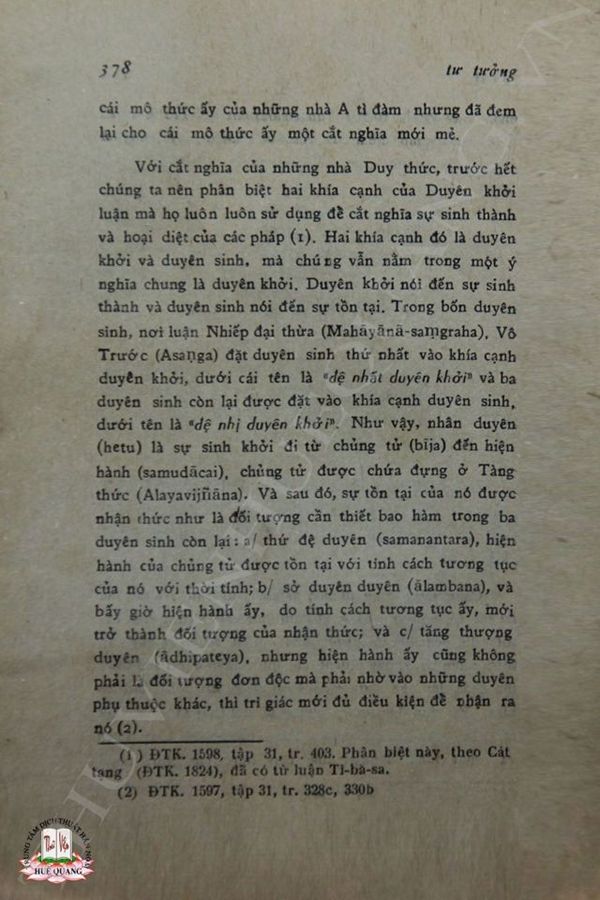 378
tư tưởng
cái mô thức ấy của những nhà A tì đàm nhưng đã đem
lại cho cái mô thức ấy một cắt nghĩa mới mẻ.
Với cắt nghĩa của những nhà Duy thức, trước hết
chúng ta nên phân biệt hai khía cạnh của Duyên khởi
luận mà họ luôn luôn sử dụng để cắt nghĩa sự sinh thành
và hoại diệt của các pháp (1). Hai khía cạnh đó là duyên
khởi và duyên sinh, mà chúng vẫn nằm trong một ý
nghĩa chung là duyên khởi. Duyên khởi nói đến sự sinh
thành và duyên sinh nói đến sự tồn tại. Trong bốn duyên
sinh, nơi luận Nhiếp đại thừa (Mahāyānā-saṃgraha), Vô
Trước (Asaṇga) đặt duyên sinh thứ nhất vào khía cạnh
duyên khởi, dưới cái tên là "đệ nhất duyên khởi" và ba
duyên sinh còn lại được đặt vào khía cạnh duyên sinh,
dưới tên là "đệ nhị duyên khởi". Như vậy, nhân duyên
(hetu) là sự sinh khởi đi từ chủng tử (bīja) đến hiện
hành (samudācai), chủng tử được chứa đựng ở Tàng
thức (Alayavijñāna). Và sau đó, sự tồn tại của nó được
nhận thức như là đối tượng cần thiết bao hàm trong ba
duyên sinh còn lại : a/ thứ đệ duyên (samanantara), hiện
hành của chủng tử được tồn tại với tính cách tương tục
của nó với thời tính; b/ sở duyên duyên (ālambana), và
bấy giờ hiện hành ấy, do tính cách tương tục ấy, mới
trở thành đối tượng của nhận thức; và c/ tăng thượng
duyên (ādhipateya), nhưng hiện hành ấy cũng không
phải là đối tượng đơn độc mà phải nhờ vào những duyên
phụ thuộc khác, thì tri giác mới đủ điều kiện để nhận ra
nó (2).
(1) ĐTK. 1598, tập 31, tr. 403. Phân biệt này, theo Cát
tạng (ĐTK. 1824), đã có từ luận Tì-bà-sa.
(2) ĐTK. 1597, tập 31, tr. 328c, 330b
TRUNG TÂM DỊCH THUẬT HÁN NÔM
HUỆ QUANG